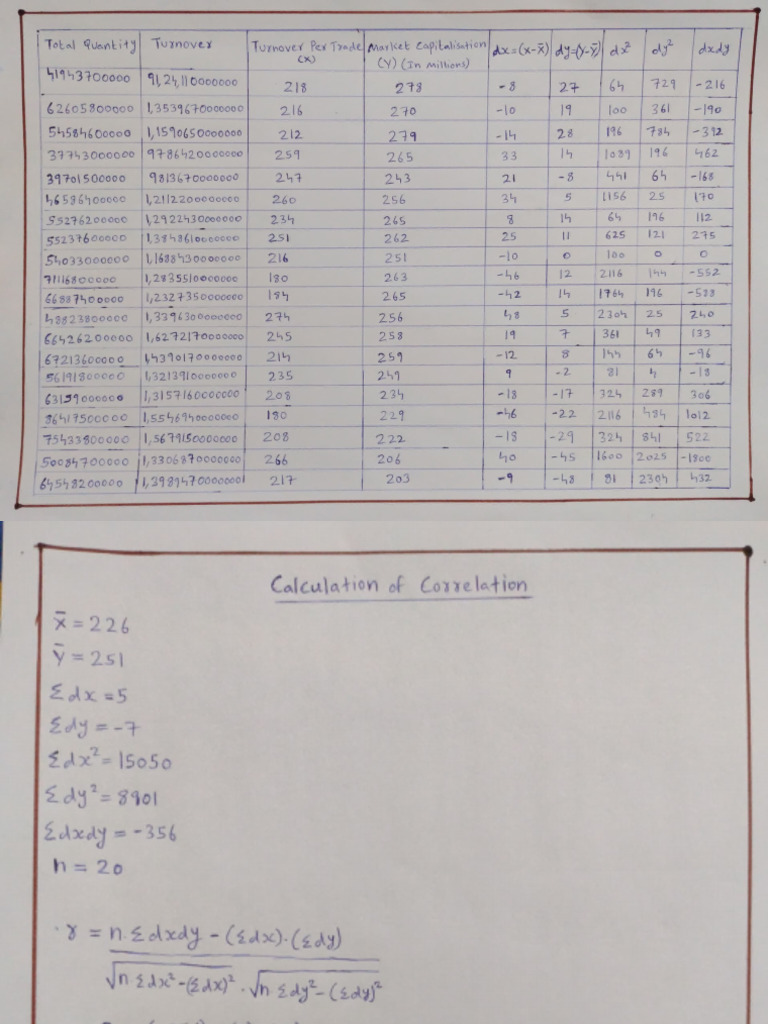 Total Quantity Turnover Turnover Per Trade (X) Market Capitalisation (Y) (In millions) dx=(x-x̄) dy=(y-ȳ) dx² dy² dxdy
41943700000 91,24,110000000 218 278 -8 27 64 729 -216
62605800000 1,3539670000000 216 270 -10 19 100 361 -190
54584600000 1,1590650000000 212 279 -14 28 196 784 -392
37743000000 9786420000000 259 265 33 14 1089 196 462
39701500000 9813670000000 247 243 21 -8 441 64 -168
46586400000 1,2112200000000 260 256 34 5 1156 25 170
55276200000 1,2922430000000 234 265 8 14 64 196 112
55237600000 1,3848610000000 251 262 25 11 625 121 275
54033000000 1,1688430000000 216 251 -10 0 100 0 0
71116800000 1,2835510000000 180 263 -46 12 2116 144 -552
66887400000 1,2327350000000 184 265 -42 14 1764 196 -588
48823800000 1,3396300000000 274 256 48 5 2304 25 240
66426200000 1,6272170000000 245 258 19 7 361 49 133
67213600000 1,4390170000000 214 259 -12 8 144 64 -96
56191800000 1,3213910000000 235 249 9 -2 81 4 -18
6315900000 1,3157160000000 208 234 -18 -17 324 289 306
86417500000 1,5546940000000 180 229 -46 -22 2116 484 1012
75433800000 1,5679150000000 208 222 -18 -29 324 841 522
50084700000 1,3306870000000 266 206 40 -45 1600 2025 -1800
64548200000 1,3989470000000 217 203 -9 -48 81 2304 432
Calculation of Correlation
x̄ = 226
ȳ = 251
Σdx = 5
Σdy = -7
Σdx² = 15050
Σdy² = 8901
Σdxdy = -356
n = 20
r = n.Σdxdy - (Σdx).(Σdy)
√n Σdx²-(Σdx)² . √n Σdy²-(Σdy)²